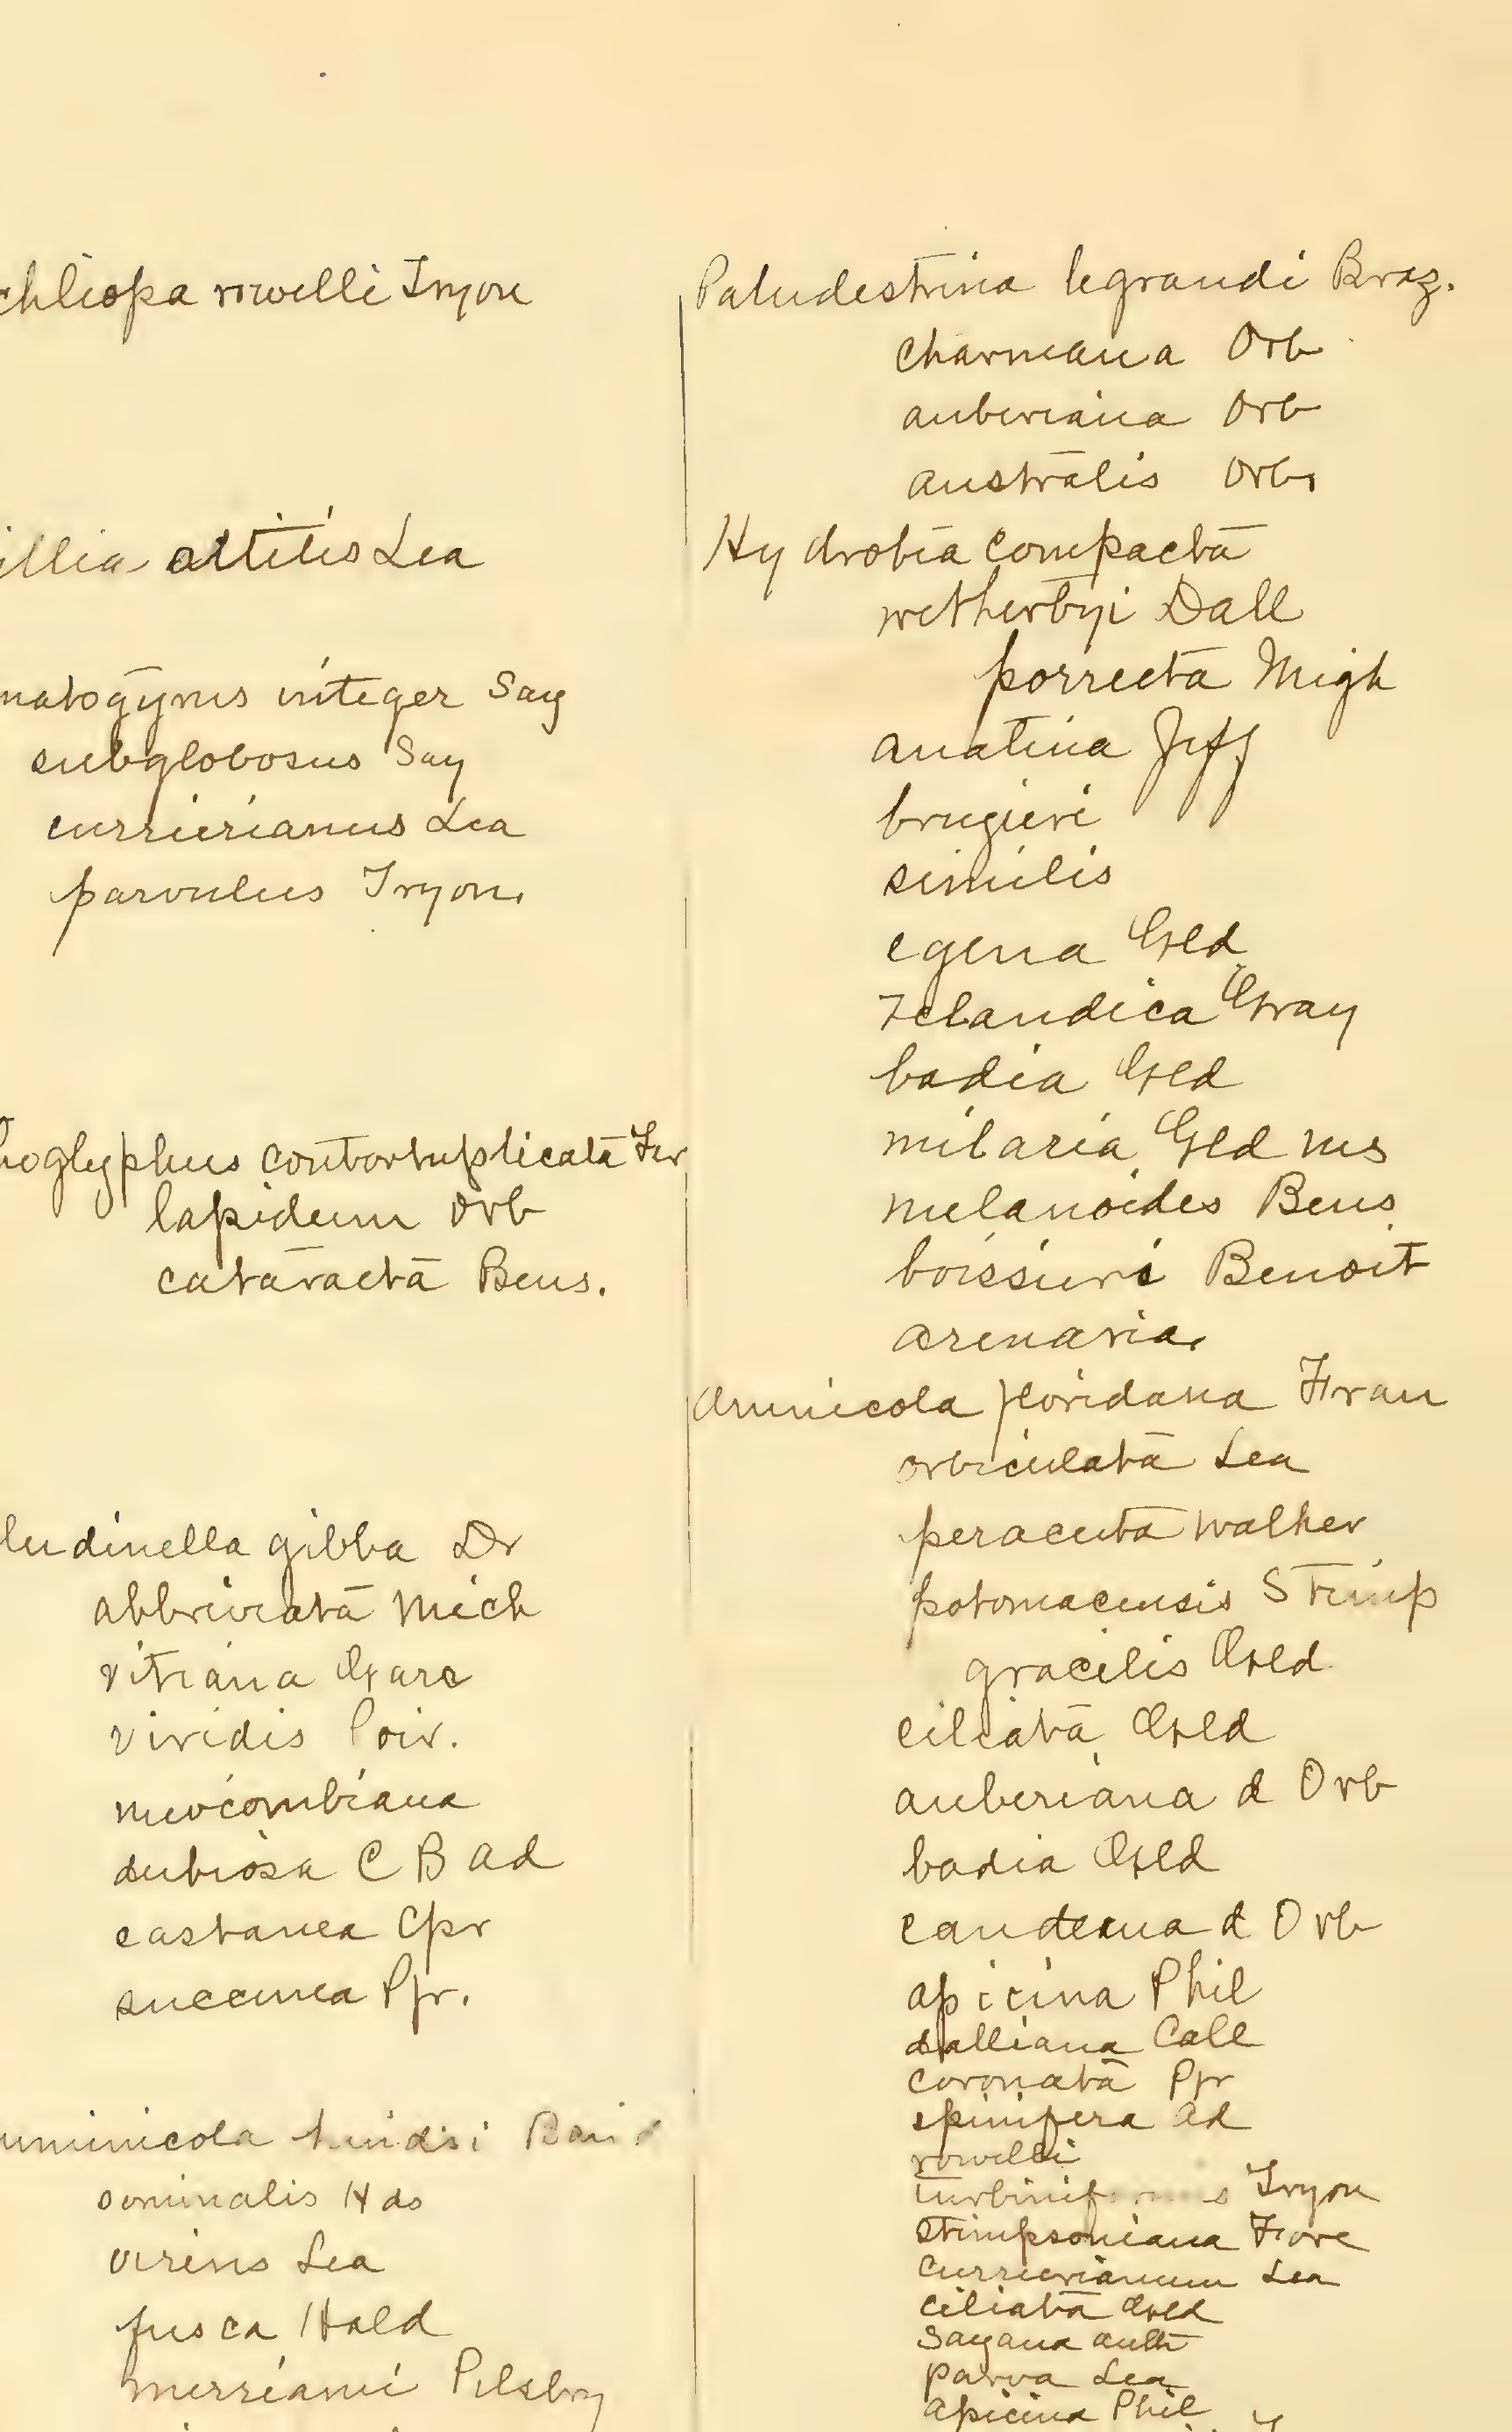 chliopa rowelli Tryon
illia altilis Lea
matogyrus integer Say
subglobosus Say
currierianus Lea
parvulus Tryon.
hoglyphus contortuplicata Fer
lapidum Orb
cataracta Bens.
ludinella gibba Dr
abbreviata Mich
vitriana Garc
viridis Poir.
newcombiana
dubiosa C B Ad
castanea Cpr
succinea Pfr.
uminicola hindsi Baird
seminalis Hds
virens Lea
fusca Hald
merriami Pilsbry
Paludestrina legrandi Braz.
charneana Orb
auberiana Orb
australis Orb.
Hydrobia compacta
wetherbyi Dall
porrecta Migh
anatina Jeff
brugieri
similis
egena Gld
zelandica Gray
badia Gld
milaria Gld ms
melanoides Bens
boissieri Benoit
arenaria
Amnicola floridana Frau
orbiculata Lea
peracuta Walker
potomacensis Stimp
gracilis Gld
ciliata Gld
auberiana d Orb
badia Gld
candeana d Orb
apicina Phil
dalliana Call
coronata Pfr
spinifera Ad
rowelli
turbiniformis Tryon
stimpsoniana Fore
currierianum Lea
ciliata Gld
Sayana Anth
parva Lea
apicina Phil